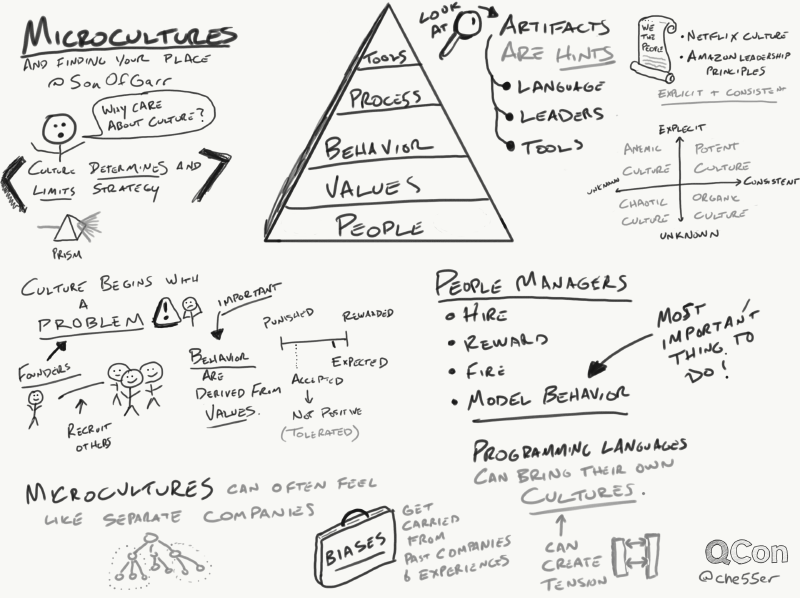 MICROCULTURES
AND FINDING YOUR PLACE
@SonOfGarr
WHY CARE
ABOUT CULTURE?
CULTURE DETERMINES AND
LIMITS STRATEGY
PRISM
TOOLS
PROCESS
BEHAVIOR
VALUES
PEOPLE
LOOK
AT
ARTIFACTS
ARE HINTS
LANGUAGE
LEADERS
TOOLS
WE
THE
PEOPLE
• NETFLIX CULTURE
• AMAZON LEADERSHIP
PRINCIPLES
EXPLICIT + CONSISTENT
EXPLECIT
ANEMIC
CULTURE
POTENT
CULTURE
UNKNOWN
CONSISTENT
CHAOTIC
CULTURE
ORGANIC
CULTURE
UNKNOWN
CULTURE BEGINS WITH
A
PROBLEM
FOUNDERS
RECRUIT
OTHERS
IMPORTANT
BEHAVIOR
ARE
DERIVED FROM
VALUES.
PUNISHED
REWARDED
EXPECTED
ACCEPTED
NOT POSITIVE
(TOLERATED)
PEOPLE MANAGERS
• HIRE
• REWARD
• FIRE
• MODEL BEHAVIOR
MOST
IMPORTANT
THING TO
DO!
PROGRAMMING LANGUAGES
CAN BRING THEIR OWN
CULTURES.
CAN
CREATE
TENSION
MICROCULTURES CAN OFTEN FEEL
LIKE SEPARATE COMPANIES
BIASES
GET
CARRIED
FROM
PAST COMPANIES
& EXPERIENCES
QCon
@che55er